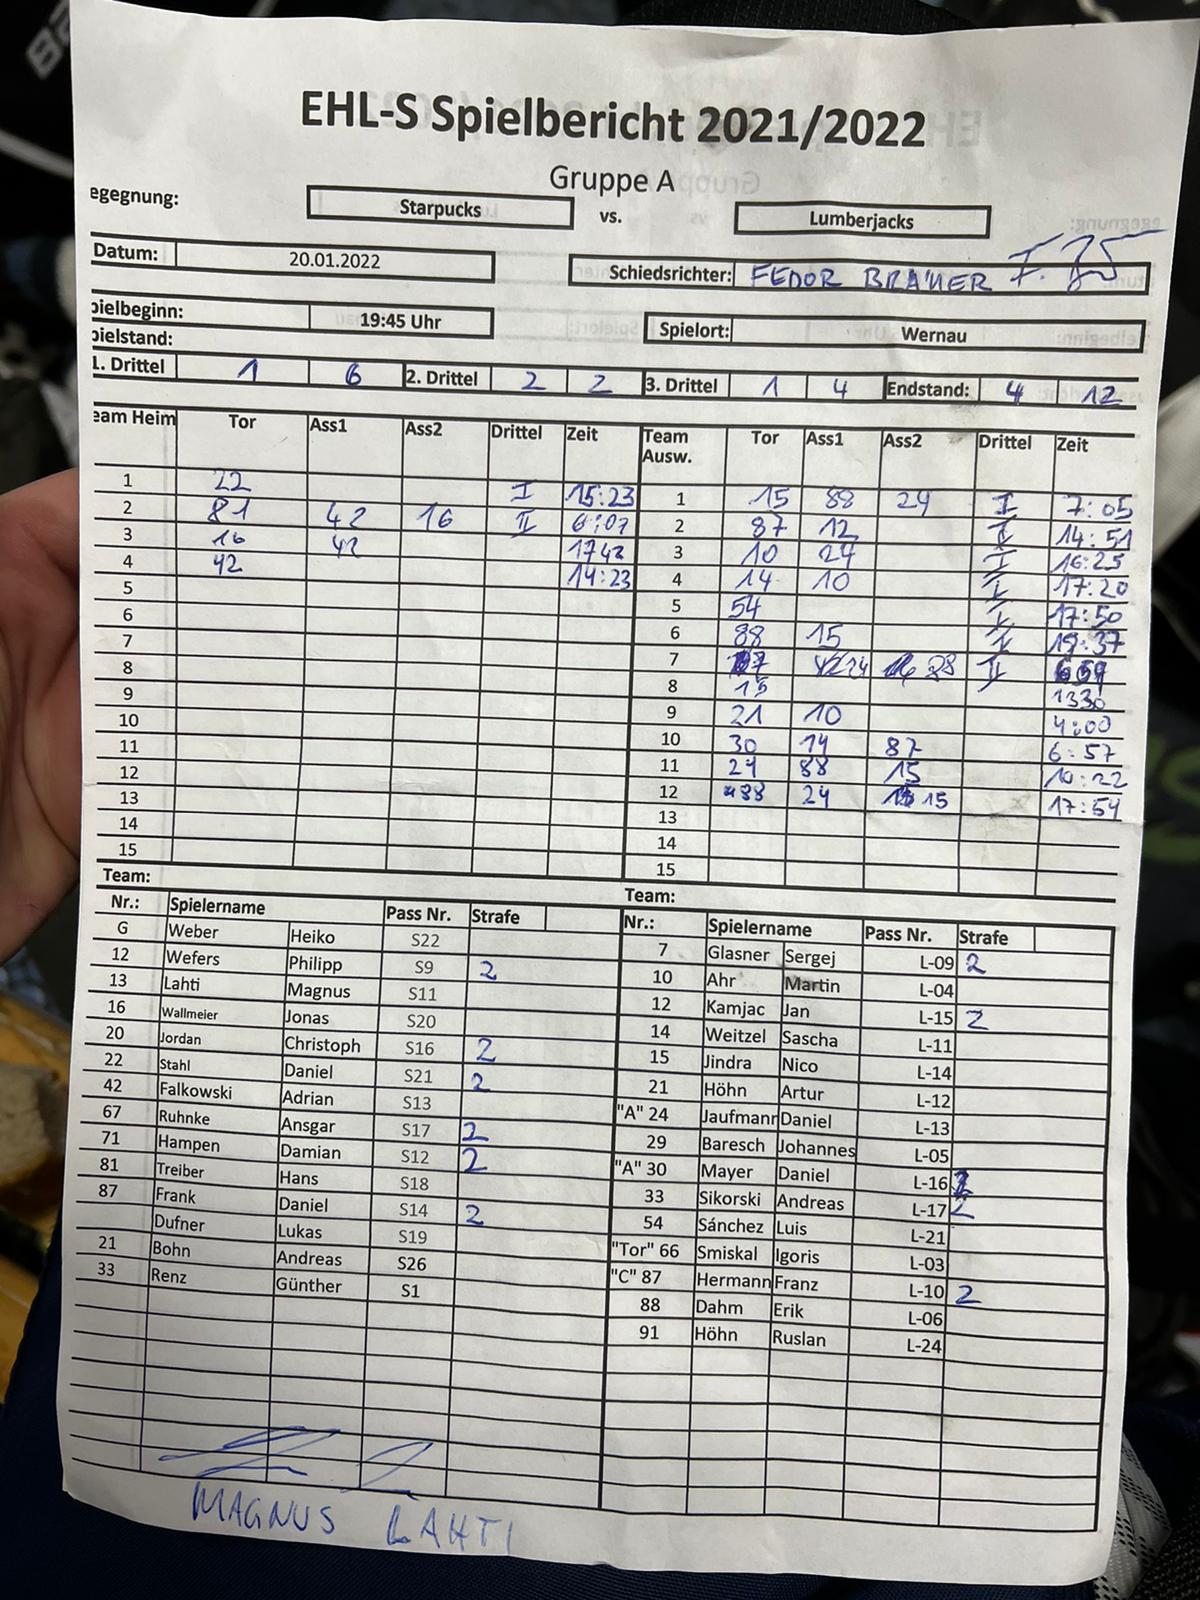 EHL-S Spielbericht 2021/2022
Gruppe A
egegnung: Starpucks vs. Lumberjacks
Datum: 20.01.2022 Schiedsrichter: FEDOR
pielbeginn: 19:45 Uhr Spielort: Wernau
pielstand:
1. Drittel 1 6 2. Drittel 2 2 3. Drittel 1 4 Endstand: 4 12
eam Heim Tor Ass1 Ass2 Drittel Zeit Team Ausw. Tor Ass1 Ass2 Drittel Zeit
1 22 I 15:23 1 15 88 29 I 7:05
2 81 42 16 II 6:07 2 87 12 I 14:51
3 16 42 1742 3 10 24 I 16:25
4 42 14:23 4 14 10 I 17:20
5 5 54 I 17:50
6 6 88 15 I 19:37
7 7 24 88 II
8 8 15 1330
9 9 21 10 4:00
10 10 30 14 87 6:57
11 11 24 88 15 10:22
12 12 88 24 15 17:54
13 13
14 14
15 15
Team: Team:
Nr.: Spielername Pass Nr. Strafe Nr.: Spielername Pass Nr. Strafe
G Weber Heiko S22 7 Glasner Sergej L-09 2
12 Wefers Philipp S9 2 10 Ahr Martin L-04
13 Lahti Magnus S11 12 Kamjac Jan L-15 2
16 Wallmeier Jonas S20 14 Weitzel Sascha L-11
20 Jordan Christoph S16 2 15 Jindra Nico L-14
22 Stahl Daniel S21 2 21 Höhn Artur L-12
42 Falkowski Adrian S13 "A" 24 Jaufmann Daniel L-13
67 Ruhnke Ansgar S17 2 29 Baresch Johannes L-05
71 Hampen Damian S12 2 "A" 30 Mayer Daniel L-16
81 Treiber Hans S18 33 Sikorski Andreas L-17 2
87 Frank Daniel S14 2 54 Sánchez Luis L-21
Dufner Lukas S19 "Tor" 66 Smiskal Igoris L-03
21 Bohn Andreas S26 "C" 87 Hermann Franz L-10 2
33 Renz Günther S1 88 Dahm Erik L-06
91 Höhn Ruslan L-24
MAGNUS LAHTI